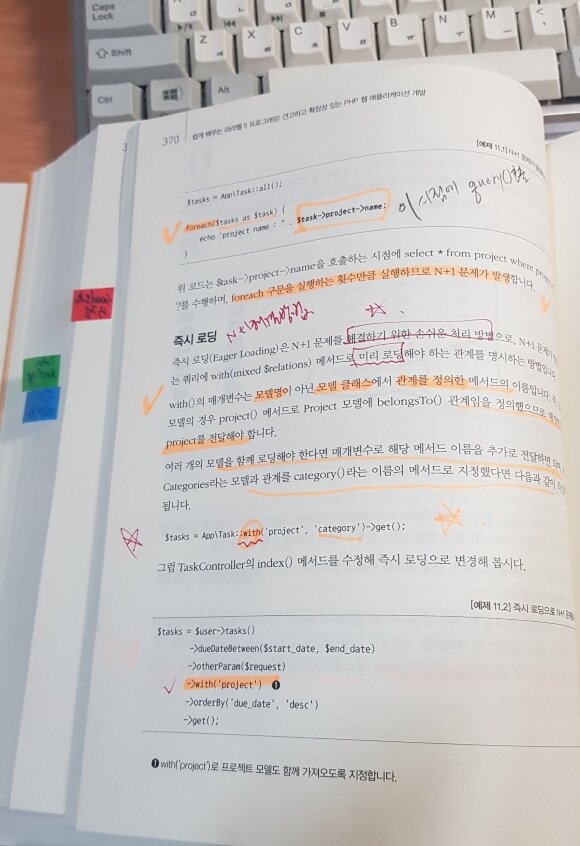 Caps
Lock
Shift
Z
X
C
V
B
N
M
Ctrl
Alt
370
쉽게 배우는 라라벨 5 프로그래밍: 견고하고 확장성 있는 PHP 웹 애플리케이션 개발
[예제 11.1] N+1 문제가
$tasks = App\Task::all();
foreach($tasks as $task) {
echo 'project name : " . $task->project->name;
이 시점에 query()
}
위 코드는 $task->project->name을 호출하는 시점에 select * from project where
?를 수행하며, foreach 구문을 실행하는 횟수만큼 실행하므로 N+1 문제가 발생합니다.
즉시 로딩
즉시 로딩(Eager Loading)은 N+1 문제를 해결하기 위한 손쉬운 처리 방법으로, N+1 문제가
는 쿼리에 with(mixed $relations) 메서드로 미리 로딩해야 하는 관계를 명시하는 방법입니다.
with()의 매개변수는 모델명이 아닌 모델 클래스에서 관계를 정의한 메서드의 이름입니다. 즉,
모델의 경우 project() 메서드로 Project 모델에 belongsTo() 관계임을 정의했으므로
project를 전달해야 합니다.
여러 개의 모델을 함께 로딩해야 한다면 매개변수로 해당 메서드 이름을 추가로 전달하면
Categories라는 모델과 관계를 category()라는 이름의 메서드로 지정했다면 다음과 같이
됩니다.
$tasks = App\Task::with('project', 'category')->get();
그럼 TaskController의 index() 메서드를 수정해 즉시 로딩으로 변경해 봅시다.
[예제 11.2] 즉시 로딩으로 N+1 문제를
$tasks = $user->tasks()
->dueDateBetween($start_date, $end_date)
->otherParam($request)
->with('project') ❶
->orderBy('due_date', 'desc')
->get();
❶ with('project')로 프로젝트 모델도 함께 가져오도록 지정합니다.